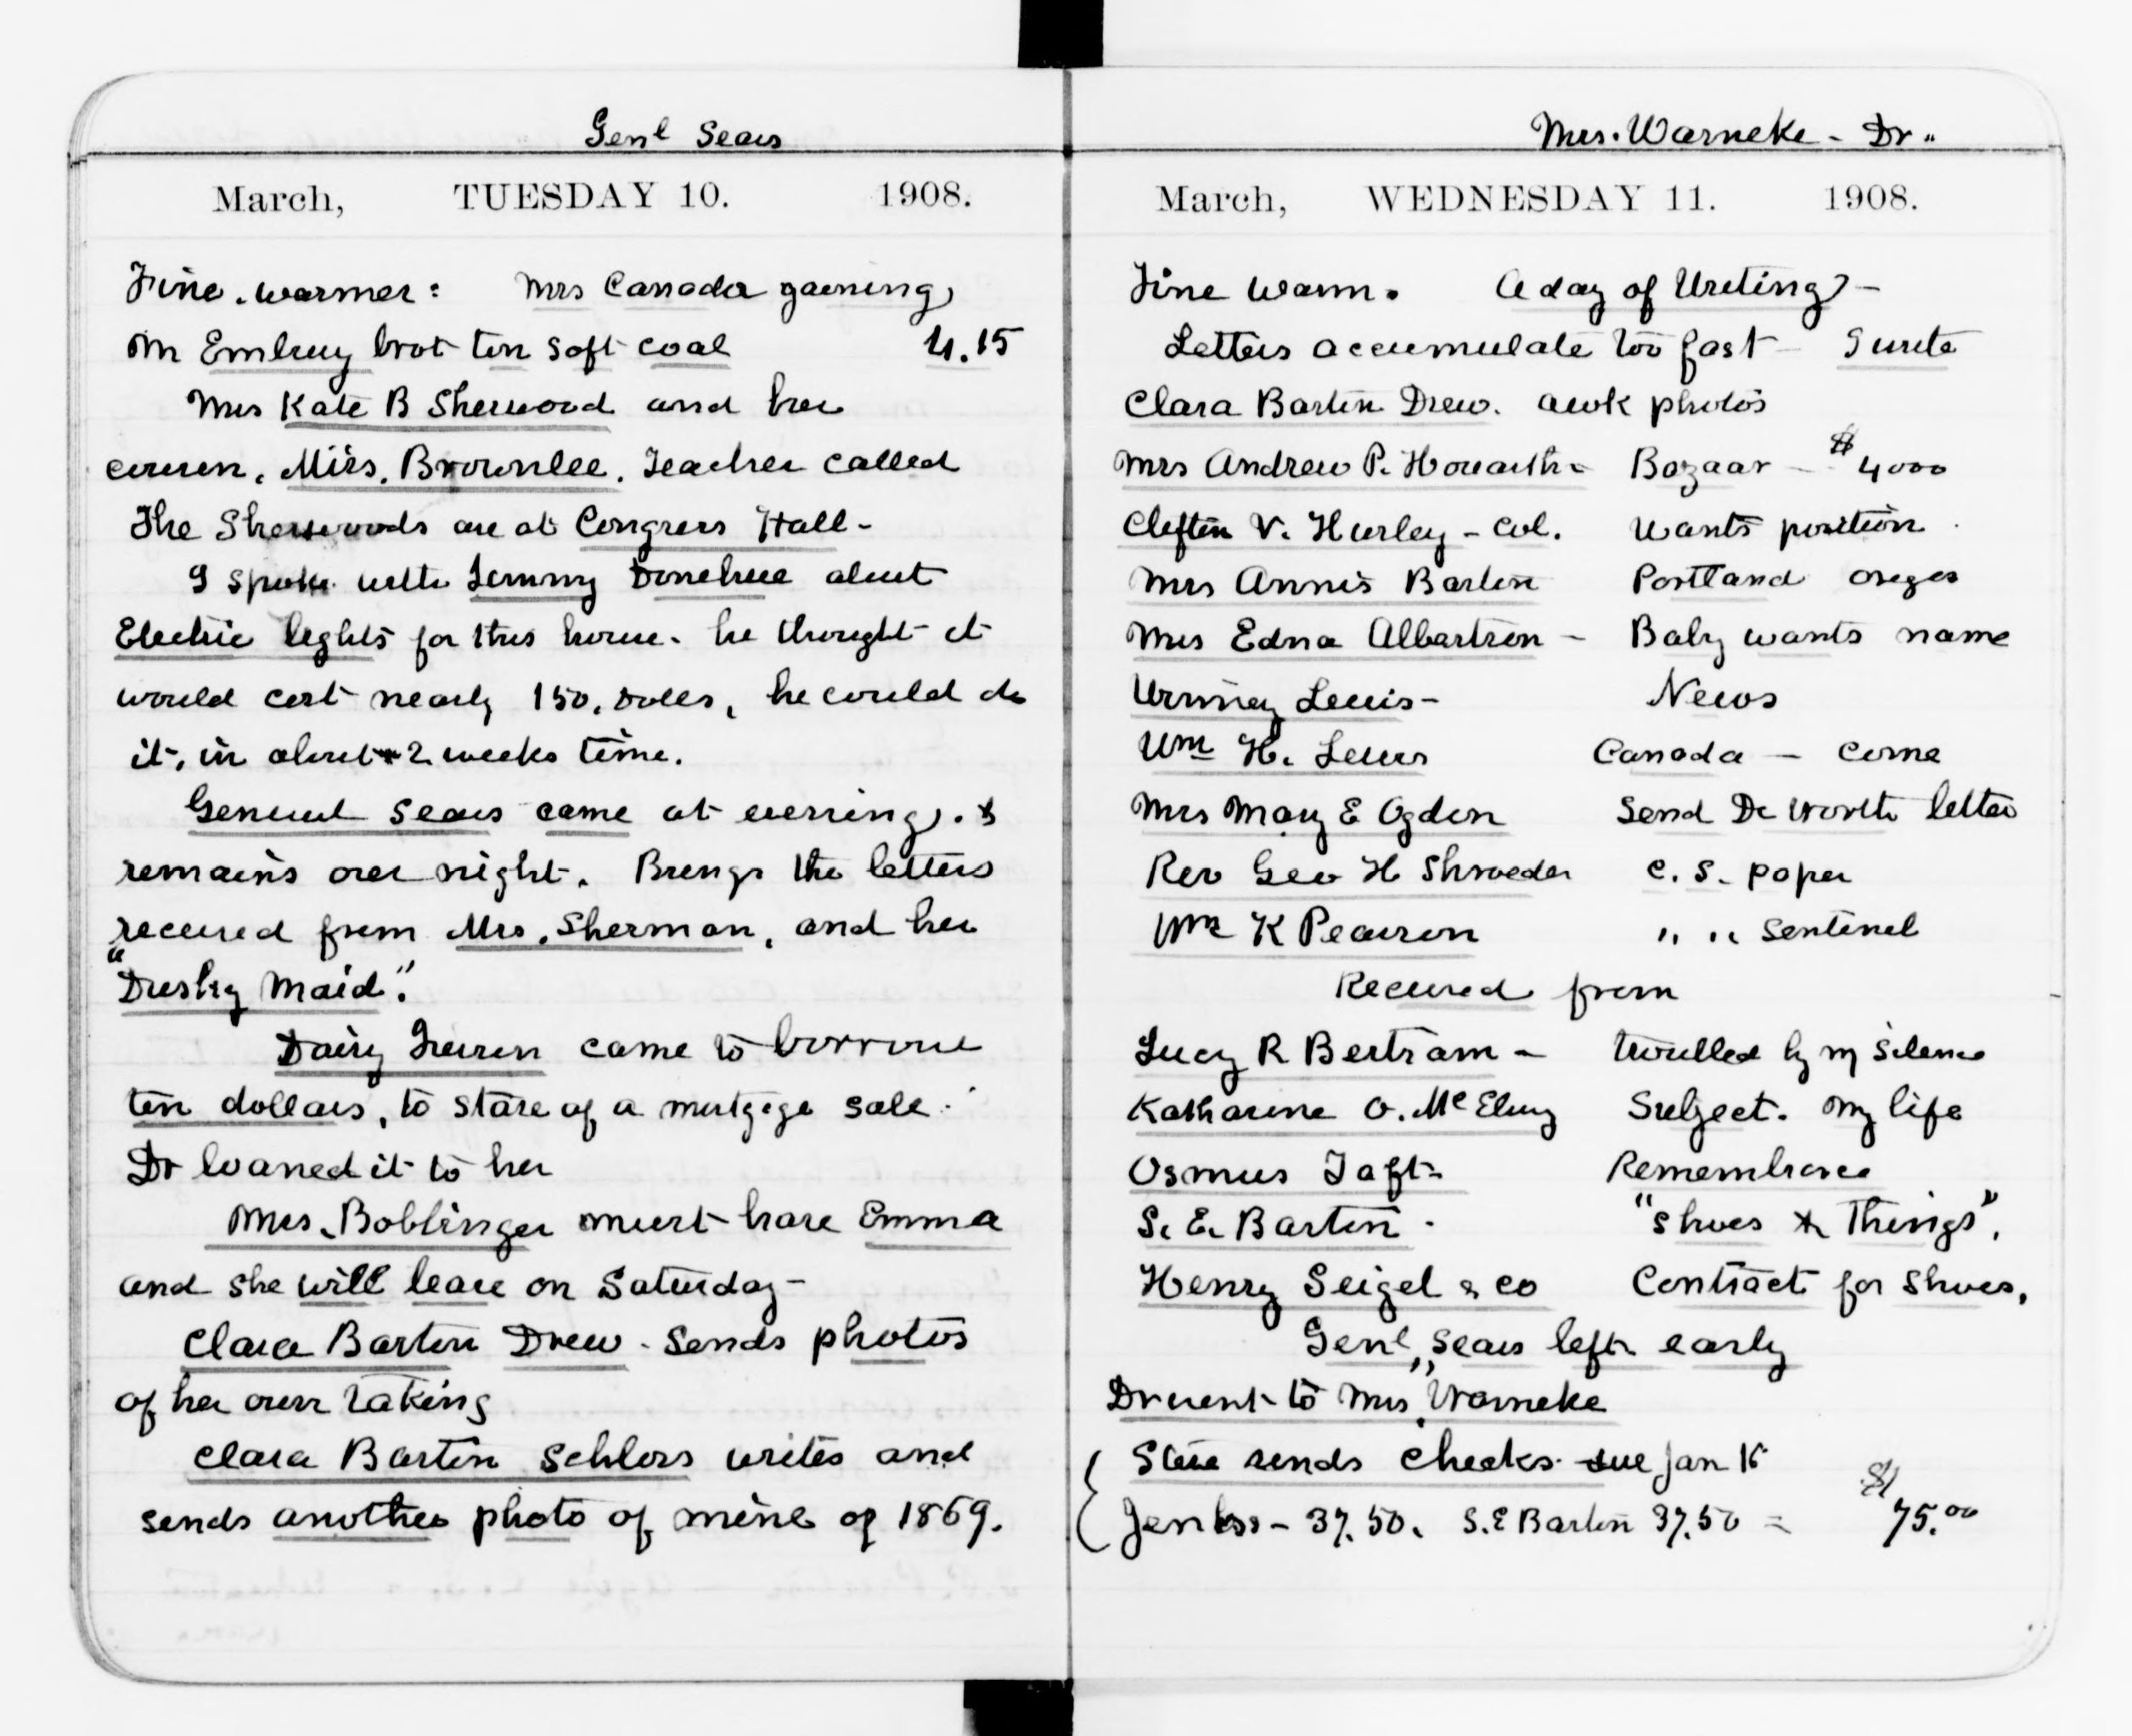 Genl Sears
March, TUESDAY 10. 1908.
Fine. warmer: Mrs Canada gaining
Mr Embrey brot ton soft coal 4.15
Mrs Kate B Sherwood and her
cousin. Miss. Brownlee. Teacher called
The Sherwoods are at Congress Hall -
I spoke with Lemmy Donehue about
Electric lights for this house. he thought it
would cost nearly 150. dolls, he could do
it, in about 2 weeks time.
General Sears came at evening. &
remains over night. Brings the letters
received from Mrs. Sherman, and her
"Dusky Maid".
Daisy came to borrow
ten dollars, to stave of a mortgage sale.
Dr loaned it to her
Mrs. Boblinger must have Emma
and she will leave on Saturday -
Clara Barton Drew. sends photos
of her own taking
Clara Barton Schloss writes and
sends another photo of mine of 1869.
Mrs. Warneke - Dr "
March, WEDNESDAY 11. 1908.
Fine warm. A day of Writing -
Letters accumulate too fast - I write
Clara Barton Drew. awk photos
Mrs Andrew P. Howarth - Bazaar - $4000
Clifton V. Hurley - Col. Wants position
Mrs Annis Barton Portland Oregon
Mrs Edna Albertson - Baby wants name
Lewis - News
Wm H. Lewis Canada - come
Mrs Mary E Ogden Send De Worth letter
Rev Geo H Shroeder C. S. paper
Wm K Pearson " " Sentinel
Received from
Lucy R Bertram - troubled by my silence
Katharine O. McElroy Subject. My life
Osmus Taft - Remembrance
S. E. Barton - "Shoes & Things".
Henry Seigel & co Contract for Shoes.
Genl, Sears left early
Dr went to Mrs, Warneke
Steve sends checks. due Jan 15
Jenkss - 37.50. S.E Barton 37.50 = $75.00